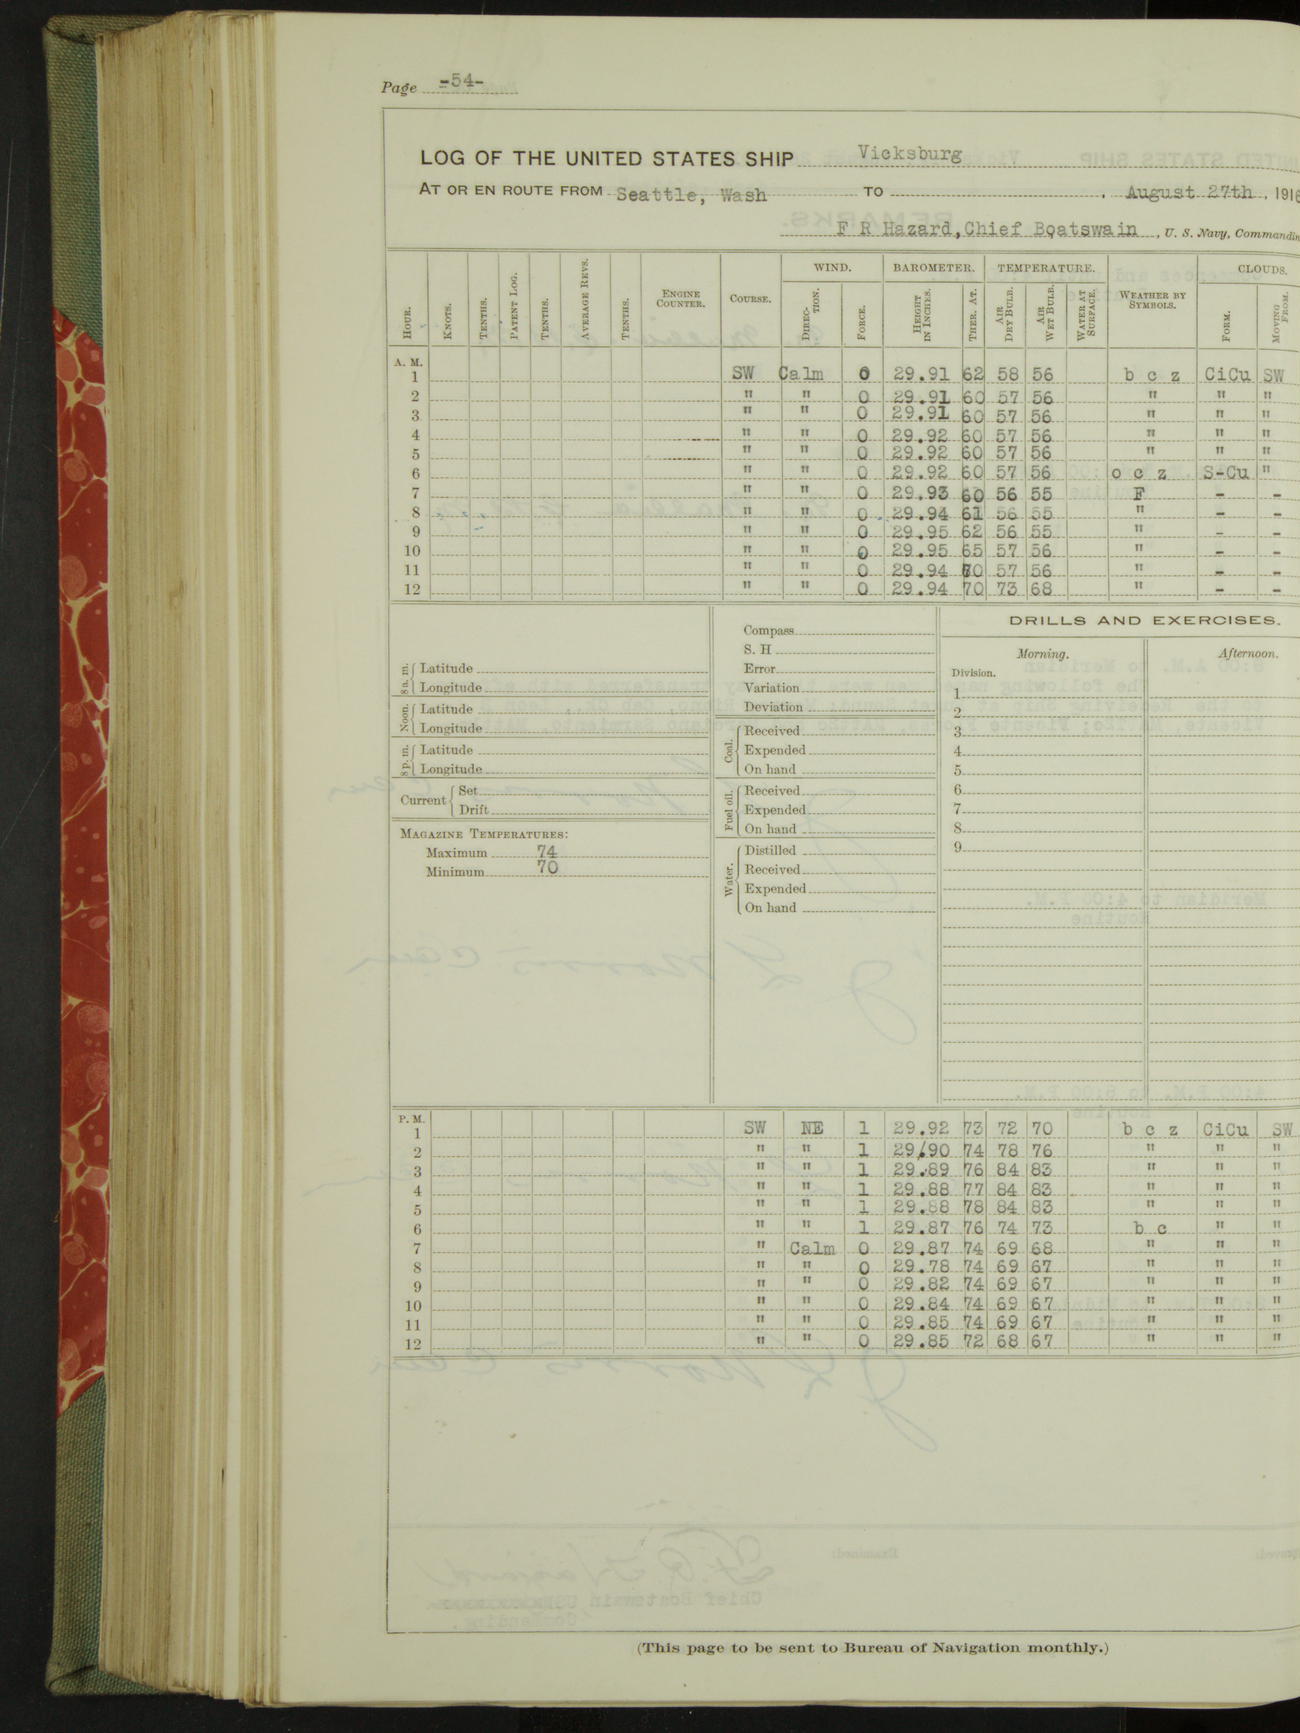 Page -54-
LOG OF THE UNITED STATES SHIP Vicksburg
AT OR EN ROUTE FROM Seattle, Wash TO , August 27th, 1916
F R Hazard, Chief Boatswain, U. S. Navy, Commandin
WIND. BAROMETER. TEMPERATURE. CLOUDS.
HOUR. KNOTS. TENTHS. PATENT LOG. TENTHS. AVERAGE REVS. TENTHS. ENGINE COUNTER. COURSE. DIREC-TION. FORCE. HEIGHT IN INCHES. THER. AT. AIR DRY BULB. AIR WET BULB. WATER AT SURFACE. WEATHER BY SYMBOLS. FORM. MOVING FROM.
A. M.
1 SW Calm 0 29.91 62 58 56 b c z CiCu SW
2 " " 0 29.91 60 57 56 " " "
3 " " 0 29.91 60 57 56 " " "
4 " " 0 29.92 60 57 56 " " "
5 " " 0 29.92 60 57 56 " " "
6 " " 0 29.92 60 57 56 o c z S-Cu "
7 " " 0 29.93 60 56 55 F - -
8 " " 0 29.94 61 56 55 " - -
9 " " 0 29.95 62 56 55 " - -
10 " " 0 29.95 65 57 56 " - -
11 " " 0 29.94 70 57 56 " - -
12 " " 0 29.94 70 73 68 " - -
8 a. m. Latitude
Longitude
Noon. Latitude
Longitude
8 p. m. Latitude
Longitude
Current Set
Drift
MAGAZINE TEMPERATURES:
Maximum 74
Minimum 70
Compass
S. H
Error
Variation
Deviation
Coal. Received
Expended
On hand
Fuel oil. Received
Expended
On hand
Water. Distilled
Received
Expended
On hand
DRILLS AND EXERCISES.
Morning. Afternoon.
Division.
1
2
3
4
5
6
7
8
9
P. M.
1 SW NE 1 29.92 73 72 70 b c z CiCu SW
2 " " 1 29/90 74 78 76 " " "
3 " " 1 29.89 76 84 83 " " "
4 " " 1 29.88 77 84 83 " " "
5 " " 1 29.88 78 84 83 " " "
6 " " 1 29.87 76 74 73 b c " "
7 " Calm 0 29.87 74 69 68 " " "
8 " " 0 29.78 74 69 67 " " "
9 " " 0 29.82 74 69 67 " " "
10 " " 0 29.84 74 69 67 " " "
11 " " 0 29.85 74 69 67 " " "
12 " " 0 29.85 72 68 67 " " "
(This page to be sent to Bureau of Navigation monthly.)